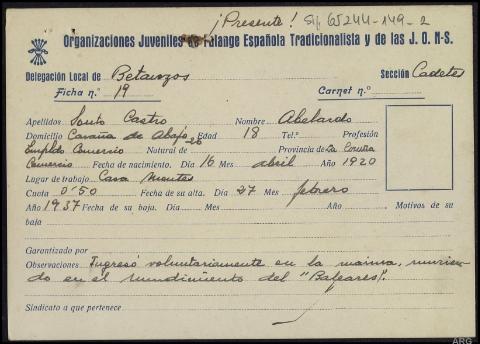 ¡Presente! S/f. 65244-149-2
Organizaciones Juveniles de Falange Española Tradicionalista y de las J. O. N-S.
Delegación Local de Betanzos Sección Cadetes
Ficha n.º 19 Carnet n.º
Apellidos Souto Castro Nombre Abelardo
Domicilio de Abajo 26 Edad 18 Tel.º Profesión
Empldo Comercio Natural de Provincia de La Coruña
Comercio Fecha de nacimiento. Día 16 Mes abril Año 1920
Lugar de trabajo Casa Montes
Cuota 0'50 Fecha de su alta. Día 27 Mes febrero
Año 1937 Fecha de su baja. Día Mes Año , Motivos de su
baja
Garantizado por
Observaciones Ingresó voluntariamente en la marina, murien-
do en el hundimiento del "Baleares".
Sindicato a que pertenece
ARG